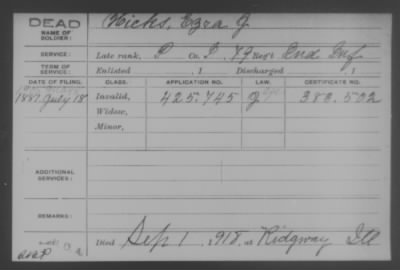 DEAD
NAME OF SOLDIER:
Hicks, Ezra J.
SERVICE:
Late rank, P Co. I, 89 Reg't Ind Inf
TERM OF SERVICE:
Enlisted , 1 Discharged 1
DATE OF FILING. CLASS. APPLICATION NO. LAW. CERTIFICATE NO.
1887 July 18 Invalid, 425.745 383.502
Widow,
Minor,
ADDITIONAL SERVICES:
REMARKS:
Died Sep 1, 1918, at Ridgway Ill